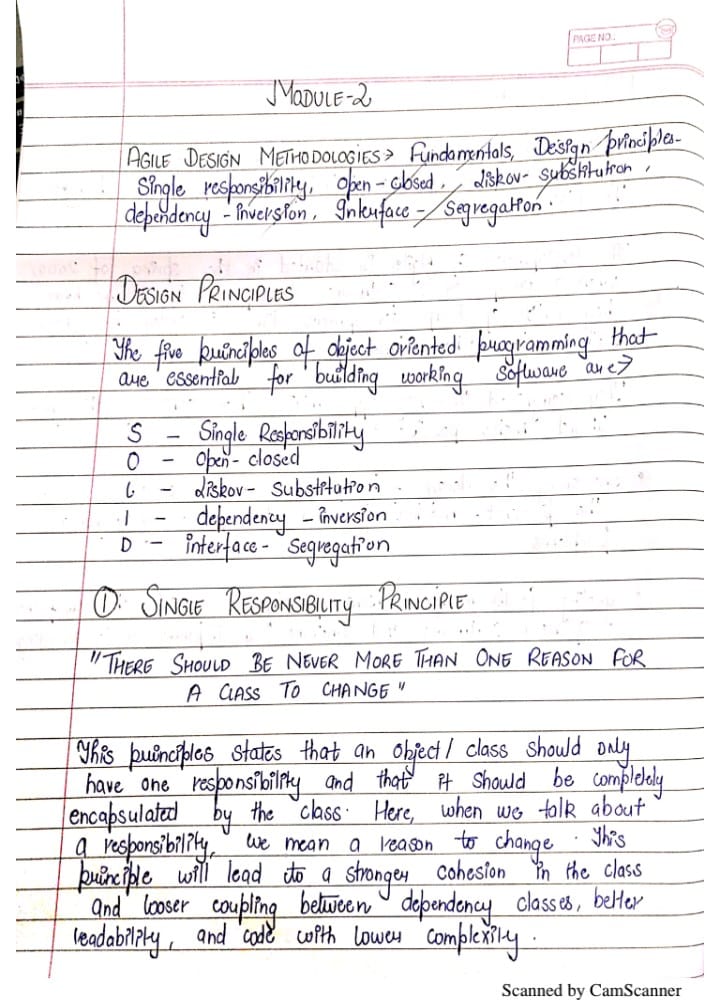 PAGE NO.
MODULE-2
AGILE DESIGN METHODOLOGIES → Fundamentals, Design principles-
Single responsibility, open-closed, Liskov-substitution,
dependency-inversion, Interface-Segregation.
DESIGN PRINCIPLES
The five principles of object oriented programming that
are essential for building working software are →
S - Single Responsibility
O - Open-closed
L - Liskov-Substitution
I - dependency-inversion
D - interface-Segregation
①. SINGLE RESPONSIBILITY PRINCIPLE.
"THERE SHOULD BE NEVER MORE THAN ONE REASON FOR
A CLASS TO CHANGE"
This principles states that an object/class should only
have one responsibility and that it should be completely
encapsulated by the class. Here, when we talk about
a responsibility, we mean a reason to change. This
principle will lead to a stronger cohesion in the class
and looser coupling between dependency classes, better
readability, and code with lower complexity.
Scanned by CamScanner